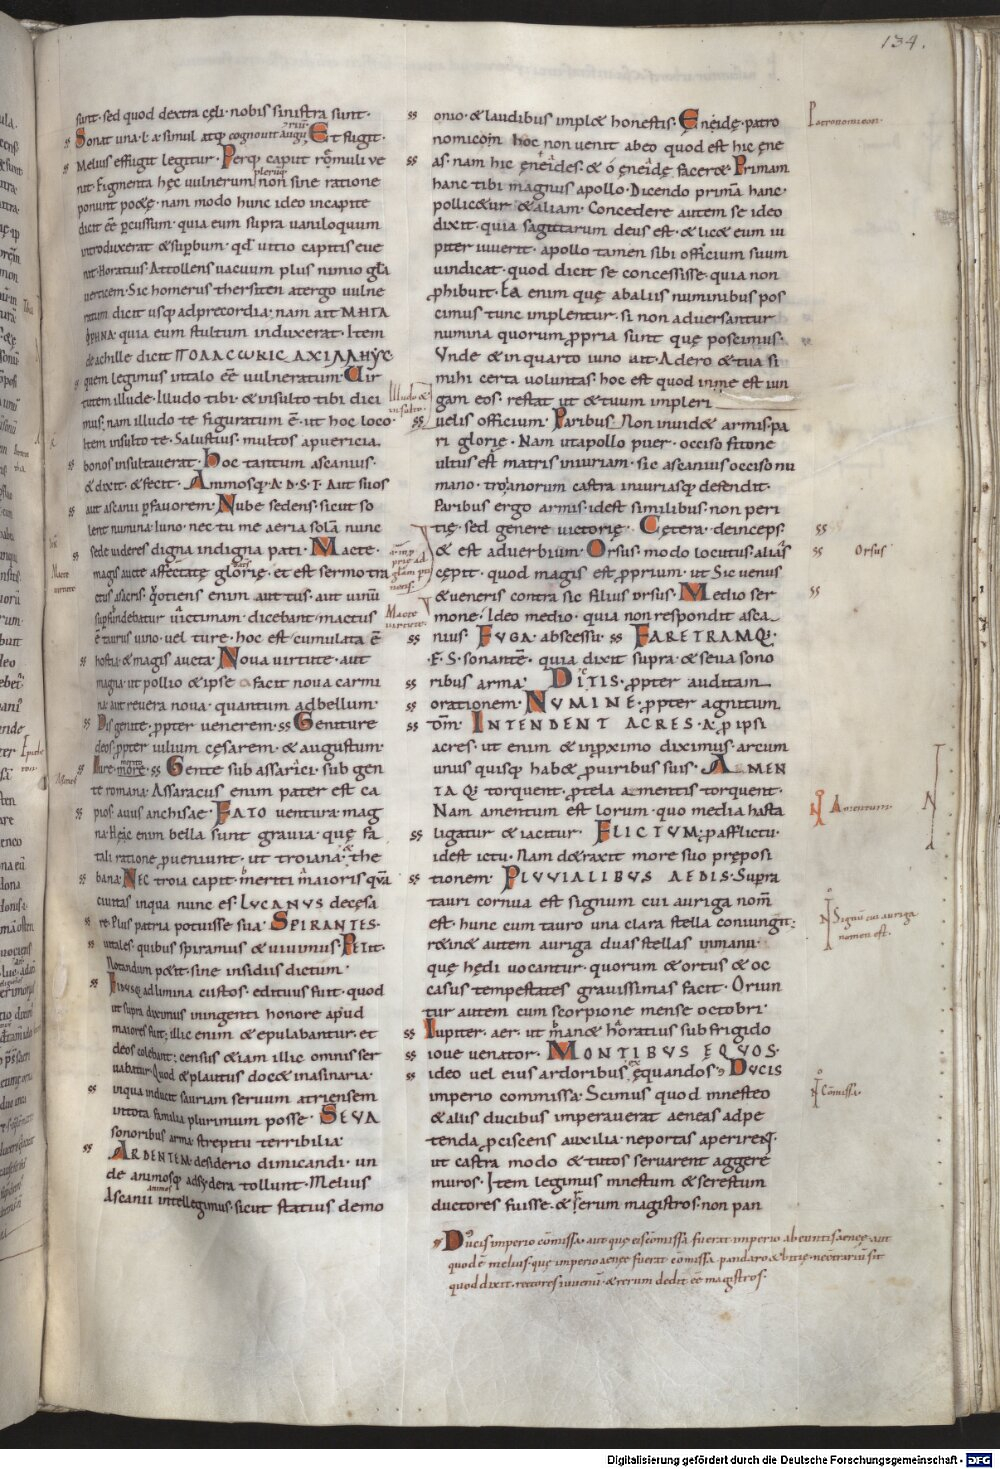 134.
sunt· sed quod dextra cęli· nobis sinistra sunt·
Sonat una· l· a simul atq; cognouit augu Et fugit·
rium
Melius effugit legitur· Perq; caput romuli ue
nit. Figmenta hęc uulnerum non sine ratione
plerumq;
ponunt poetę· nam modo hunc ideo incapite
dicit eē percussum· quia eum supra uaniloquum
introduxerat & supbum· qd uitio capitis eue
nit· Horatius· Attollens uacuum plus nimio glā
uerticem· Sic homerus thersiten atergo uulne
ratum dicit usq; adprecordia· nam ait
quia eum stultum induxerat· Item
deachille dicit
quem legimus intalo eē uulneratum· Uir
tutem illude· Illudo tibi· & insulto tibi dici
mus· nam illudo te figuratum ē· ut hoc loco·
Item insulto te· Salustius· multos apuericia·
bonos insultauerat· Hoc tantum ascanius·
& dixit· & fecit· Ammosq; A·D·S·T· Aut suos
aut ascanii pfauorem· Nube sedens· sicut so
lent numina· Iuno· nec tu me aeria solā nunc
sede uideres digna indigna pati· Macte·
magis aucte affectatę glorię· et est sermo tra
ctus asacris· quotiens enim aut tus· aut uinū
supfundebatur uictimam· dicebant· mactus
ē taurus uino· uel ture· hoc est cumulata ē
hostia· & magis aucta· Noua uirtute· aut
magna· ut pollio & ipse facit noua carmi
na· aut reuera noua· quantum adbellum·
Dis genite· ppter uenerem· Geniture
deos· ppter iulium cęsarem· & augustum·
Iure· more· Gente sub assarici· sub gen
merito
te romana· Assaracus enim pater est ca
pios· auus anchisae· Fato uentura· mag
na· Hęc enim bella sunt grauia· quę fa
tali ratione proueniunt· ut troiana· & the
bana· Nec troia capit· meriti maioris quā
ciuitas inqua nunc es· Lucanus· decęsa
re· Plus patria potuisse sua· Spirantes·
uitales· quibus spiramus & uiuimus· Petit·
Notandum petit· sine insidiis dictum·
Fidusq; adlimina custos· edituus fuit· quod
ut supra diximus iningenti honore apud
maiores fuit· illic enim & epulabantur· et
deos colebant· census etiam illic omnis ser
uabatur· Quod & plautus docet inasinaria·
inqua inducit sauriam seruum atriensem
intota familia plurimum posse· Seua
sonoribus arma· strepitu terribilia·
Ardentem· desiderio dimicandi· un
de animosq; adsydera tollunt· Melius
Ascanii animos intellegimus· sicut statius demo
Illudo &
insulto·
Macte
uirtute·
onio· & laudibus implet honestis· Enęidę patro
nomicon hoc non uenit abeo quod est hic ęne
as· nam hic ęneides· & ó ęneidę faceret· Primam
hanc tibi magnus apollo· Dicendo primā hanc·
pollicetur & aliam· Concedere autem se ideo
dixit· quia sagittarum deus est· & licet eum iu
piter iuuerit· apollo tamen sibi officium suum
uindicat· quod dicit se concessisse· quia non
phibuit· Ea enim quę abaliis numinibus pos
cimus tunc implentur· si non aduersantur
numina quorum propria sunt quę poscimus·
Vnde & inquarto iuno ait· Adero & tua si
mihi certa uoluntas· hoc est quod inme est iun
gam eos· restat ut & tuum impleri
uelis officium· Paribus· Non inuidet armis· pa
ri glorię· Nam utapollo puer· occiso fitone
ultus est matris iniuriam· sic ascanius occiso nu
mano· troianorum castra iniuriasq; defendit·
Paribus ergo armis· idest similibus· non peri
tię· sed genere uictorię· Cętera· deinceps·
& est aduerbium· Orsus· modo locutus· alias
cępit· quod magis est proprium· ut Sic uenus
& ueneris contra sic filius orsus· Medio ser
mone· Ideo medio· quia non respondit asca
nius· Fuga· abscessu· Faretramq;·
F·S· sonantē· quia dixit supra· & seua sono
ribus arma· Ditis· ppter auditam
orationem· Numine· ppter agnitum
Intendent acres· A· pipsi
acres· ut enim & inproximo diximus· arcum
unus quisq; habet· puiribus suis· Amen
taq; torquent· ptela amentis torquent·
Nam amentum est lorum· quo media hasta
ligatur & iacitur· Flictum· pafflictu·
idest ictu· Nam detraxit more suo pręposi
tionem· Pluuialibus aedis· Supra
tauri cornua est signum cui auriga nomen
est· hunc cum tauro una clara stella coniungit·
retinet autem auriga duas stellas inmanu·
quę hędi uocantur· quorum & ortus & oc
casus tempestates grauissimas facit· Oriun
tur autem cum scorpione mense octobri·
Iupiter· aer· ut horatius sub frigido
ioue uenator· Montibus ęquos·
ideo uel eius ardoribus ęquandos· Ducis
imperio commissa· Scimus quod mnesteo
& aliis ducibus imperauerat aeneas adpe
tenda proficiscens auxilia· neportas aperirent·
ut castra modo & tutos seruarent aggere
muros· Item legimus mnestum & serestum
ductores fuisse· & rerum magistros· non pan
Ducis imperio cōmissa· aut quę eis cōmissa fuerat imperio abeuntis aeneę· aut
quod ē melius· quę imperio aeneę fuerat cōmissa pandaro & bitię· ne contrarium sit
quod dixit· rectores iuuenū· & rerum dedit eē magistros·
Patronomicon·
Orsus·
Amentum·
Signū cui auriga
nomen est·
Cōmissa·
Digitalisierung gefördert durch die Deutsche Forschungsgemeinschaft - DFG